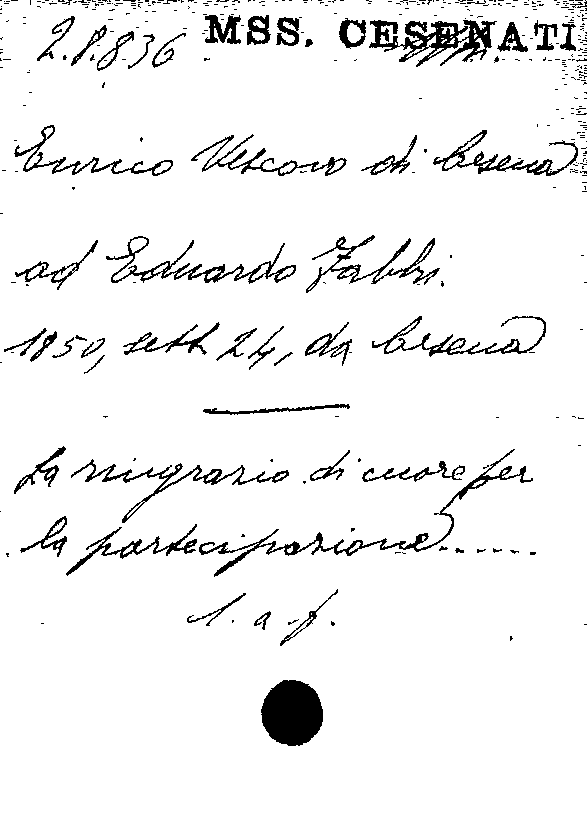 2.8.836 MSS. CESENATI
Enrico Vescovo di Cesena
ad Eduardo Fabbri.
1850, sett 24, da Cesena
La ringrazio di cuore per
la partecipazione......
l. a. f.